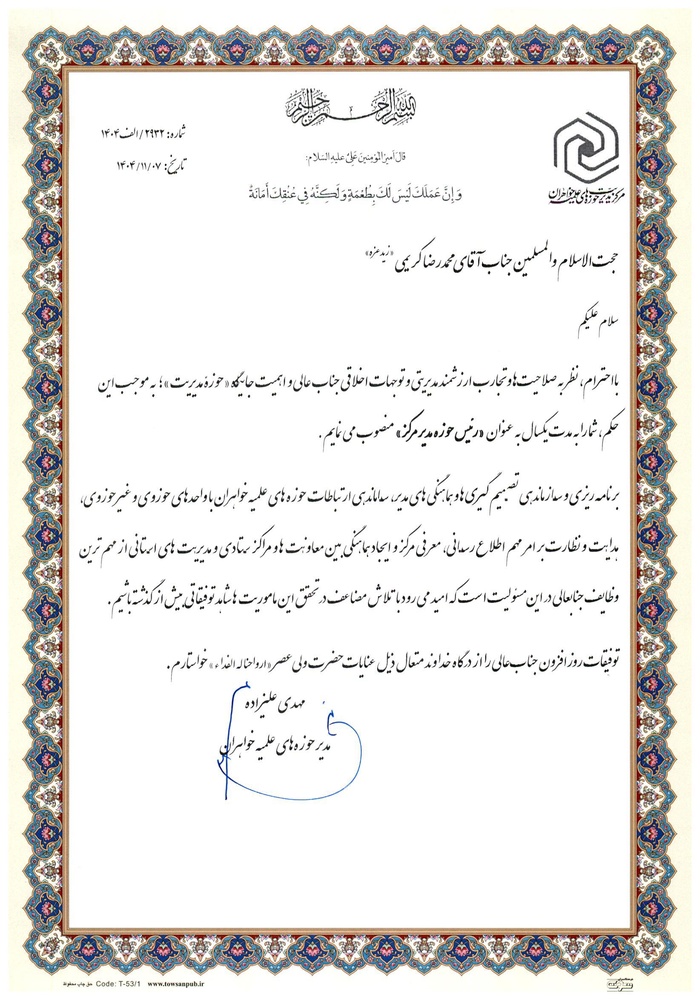 بسم الله الرحمن الرحیم
شماره: ۲۹۳۲/الف۱۴۰۴
تاریخ: ۱۴۰۴/۱۱/۰۷
مرکز مدیریت حوزه‌های علمیه خواهران
قالَ اَمیرُالمؤمنینَ عَلیٌّ علیه السّلام:
وَ إِنَّ عَمَلَكَ لَيْسَ لَكَ بِطُعْمَةٍ وَ لَكِنَّهُ فِي عُنُقِكَ أَمَانَةٌ
حجت الاسلام والمسلمین جناب آقای محمدرضا کریمی «زید عزه»
سلام علیکم
با احترام، نظر به صلاحیت ها و تجارب ارزشمند مدیریتی و توجهات اخلاقی جناب عالی و اهمیت جایگاه «حوزۀ مدیریت»؛ به موجب این
حکم، شما را به مدت یکسال به عنوان «رئیس حوزه مدیر مرکز» منصوب می نمایم.
برنامه ریزی و سازماندهی تصمیم گیری ها و هماهنگی های مدیر، ساماندهی ارتباطات حوزه های علمیه خواهران با واحدهای حوزوی و غیرحوزوی،
هدایت و نظارت بر امر مهم اطلاع رسانی، معرفی مرکز و ایجاد هماهنگی بین معاونت ها و مراکز ستادی و مدیریت های استانی از مهم ترین
وظایف جنابعالی در این مسئولیت است که امید می رود با تلاش مضاعف در تحقق این ماموریت ها شاهد توفیقاتی بیش از گذشته باشیم.
توفیقات روز افزون جناب عالی را از درگاه خداوند متعال ذیل عنایات حضرت ولی عصر «ارواحنا له الفداء» خواستارم.
مهدی علیزاده
مدیر حوزه های علمیه خواهران
حق چاپ محفوظ Code: T-53/1 www.towsanpub.ir